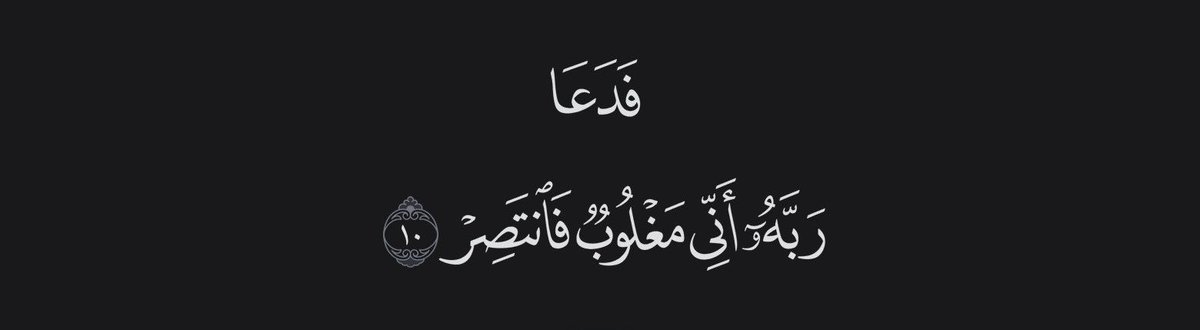 فَدَعَا
رَبَّهُۥٓ أَنِّى مَغْلُوبٌۭ فَٱنتَصِرْ ١٠